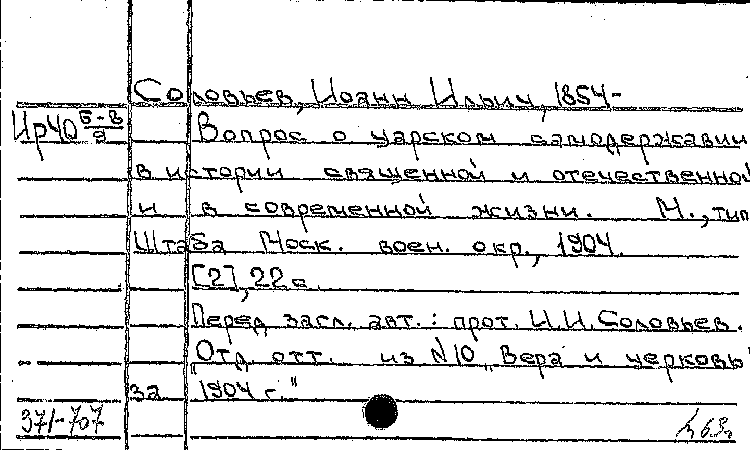 Соловьев, Иоанн Ильич, 1854-
Ир40 6-8/9 Вопрос о царском самодержавии
в истории священной и отечественной
и в современной жизни. М., тип.
Штаба Моск. воен. окр., 1904.
[2], 22 с.
Перед загл. авт.: прот. И.И. Соловьев.
"Отд. отт. из N10 "Вера и церковь"
за 1904 г."
371-707